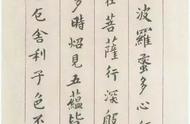 波羅蜜多心經
在菩薩行深般
多時炤見五蘊皆
厄舍利子色不